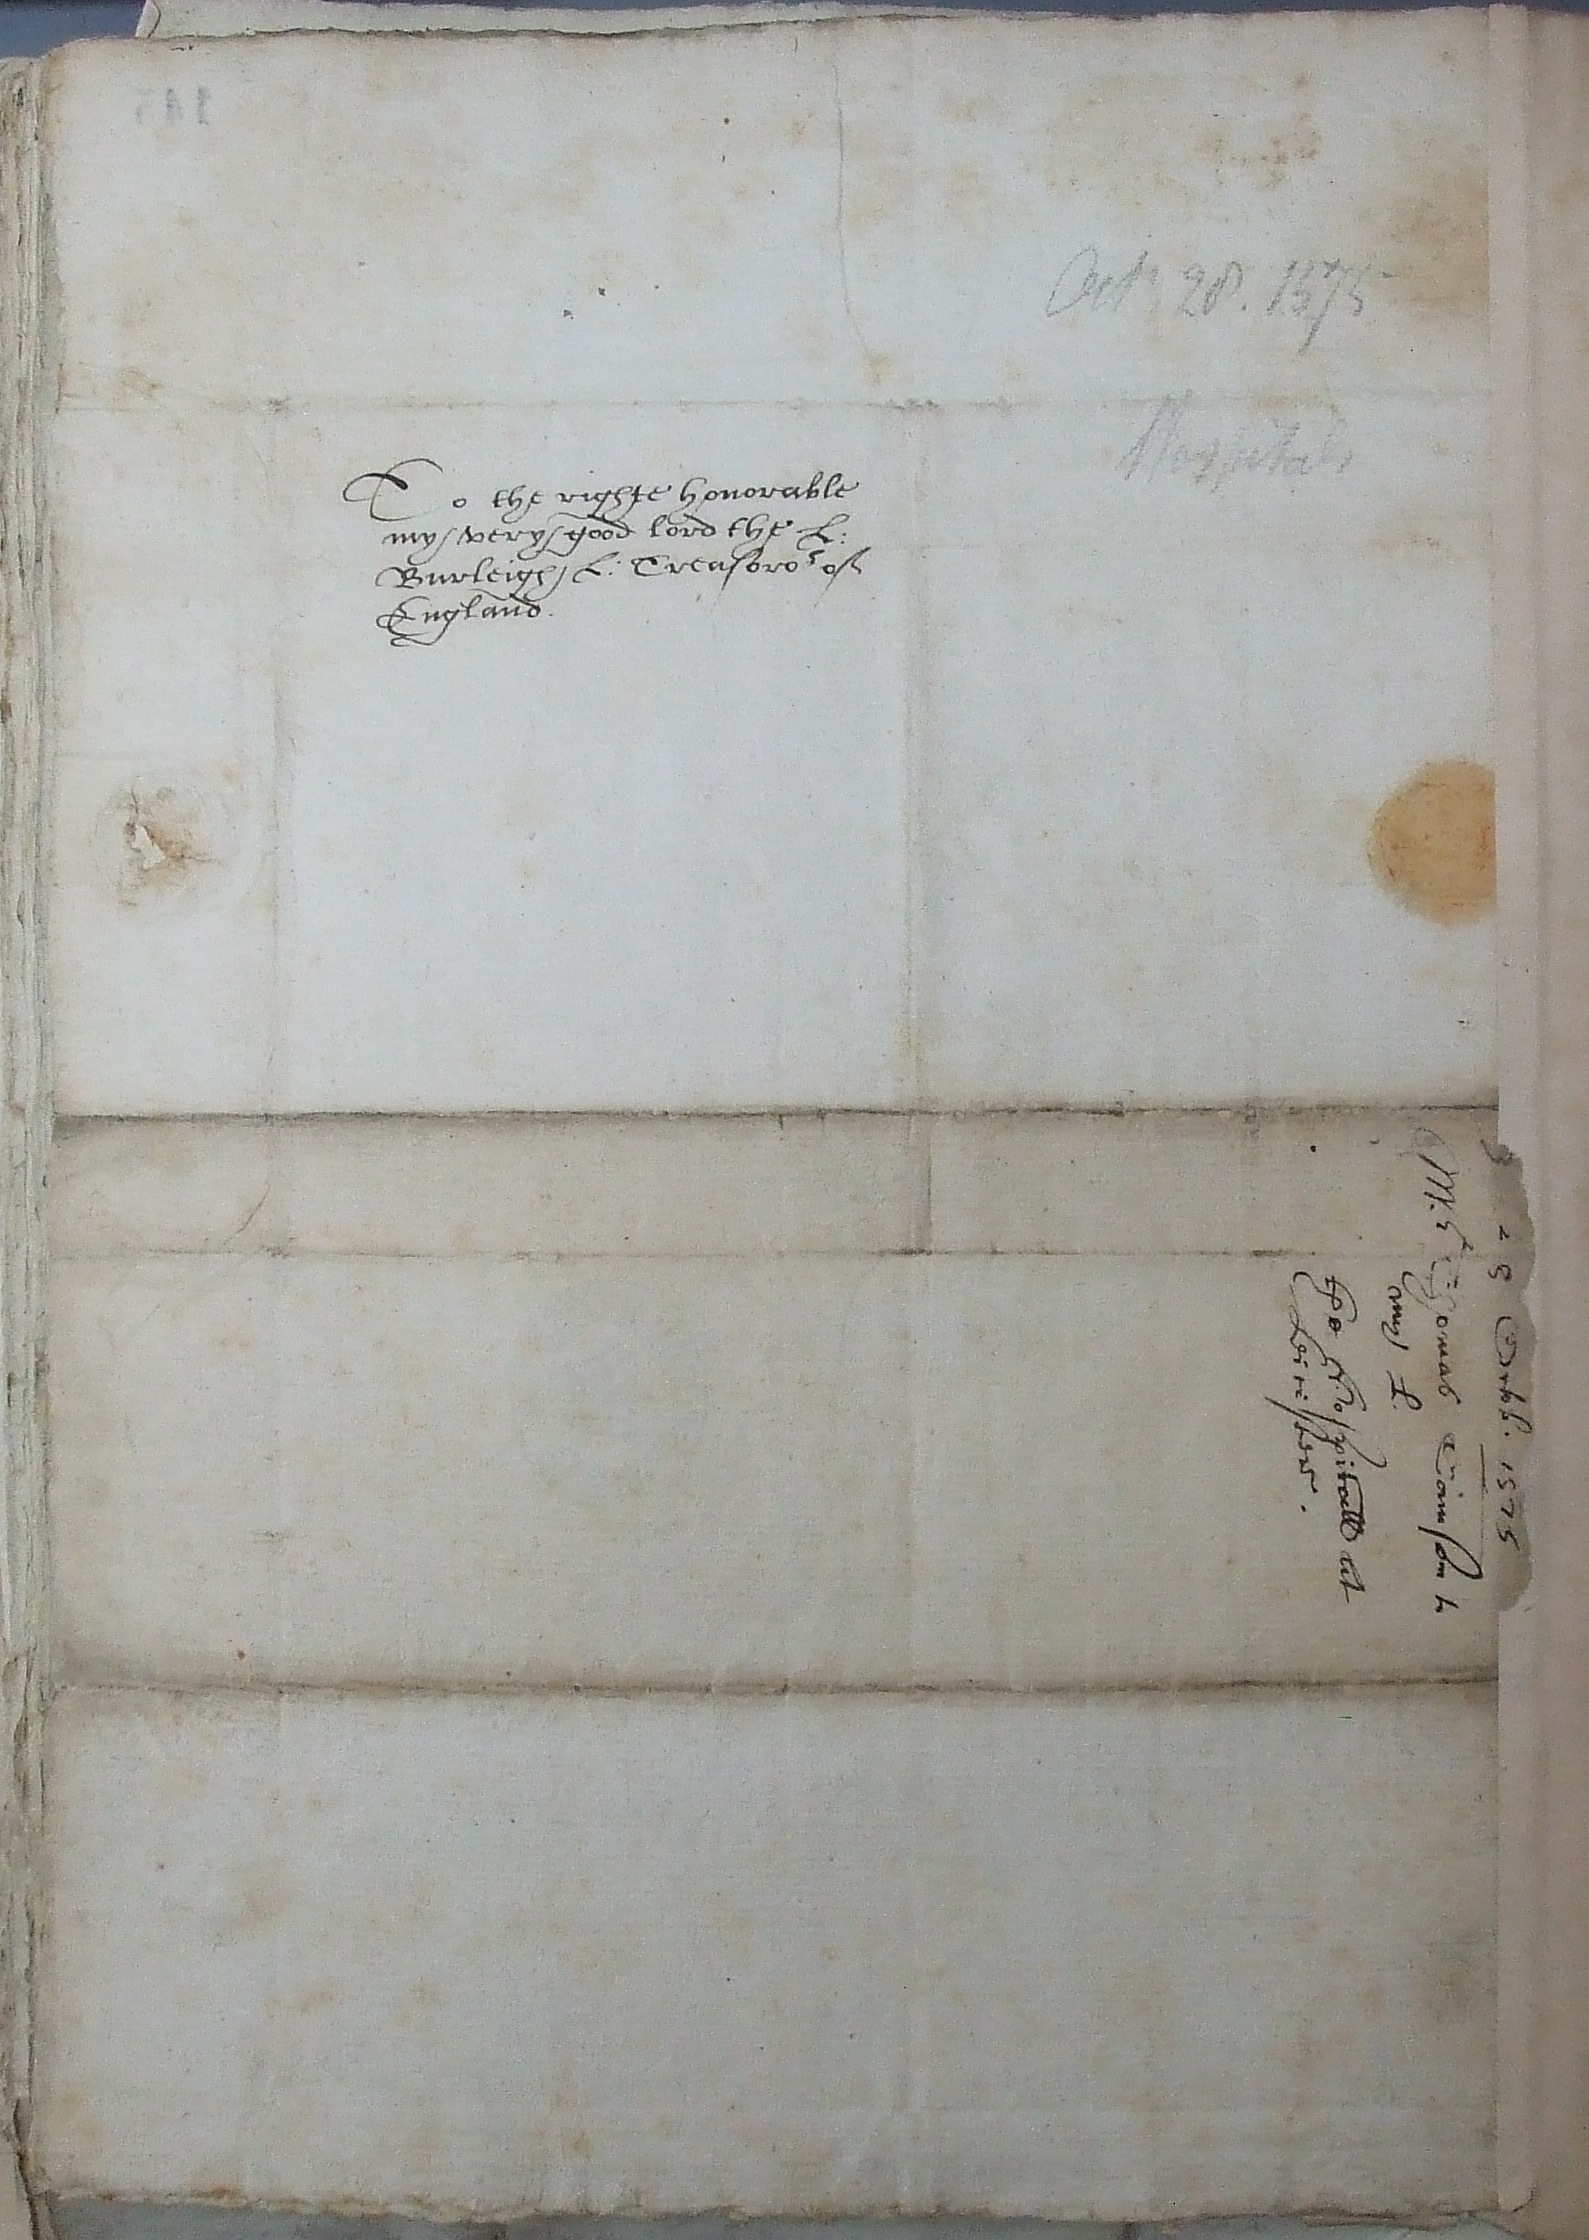 Oct: 28. 1575
Hospitals
To the righte honorable
my very good lord the L:
Burleigh L: Treasoror of
England.
28 Octob. 1575
Mr Thomas to
my L.
the Hospitall at
Leicester.